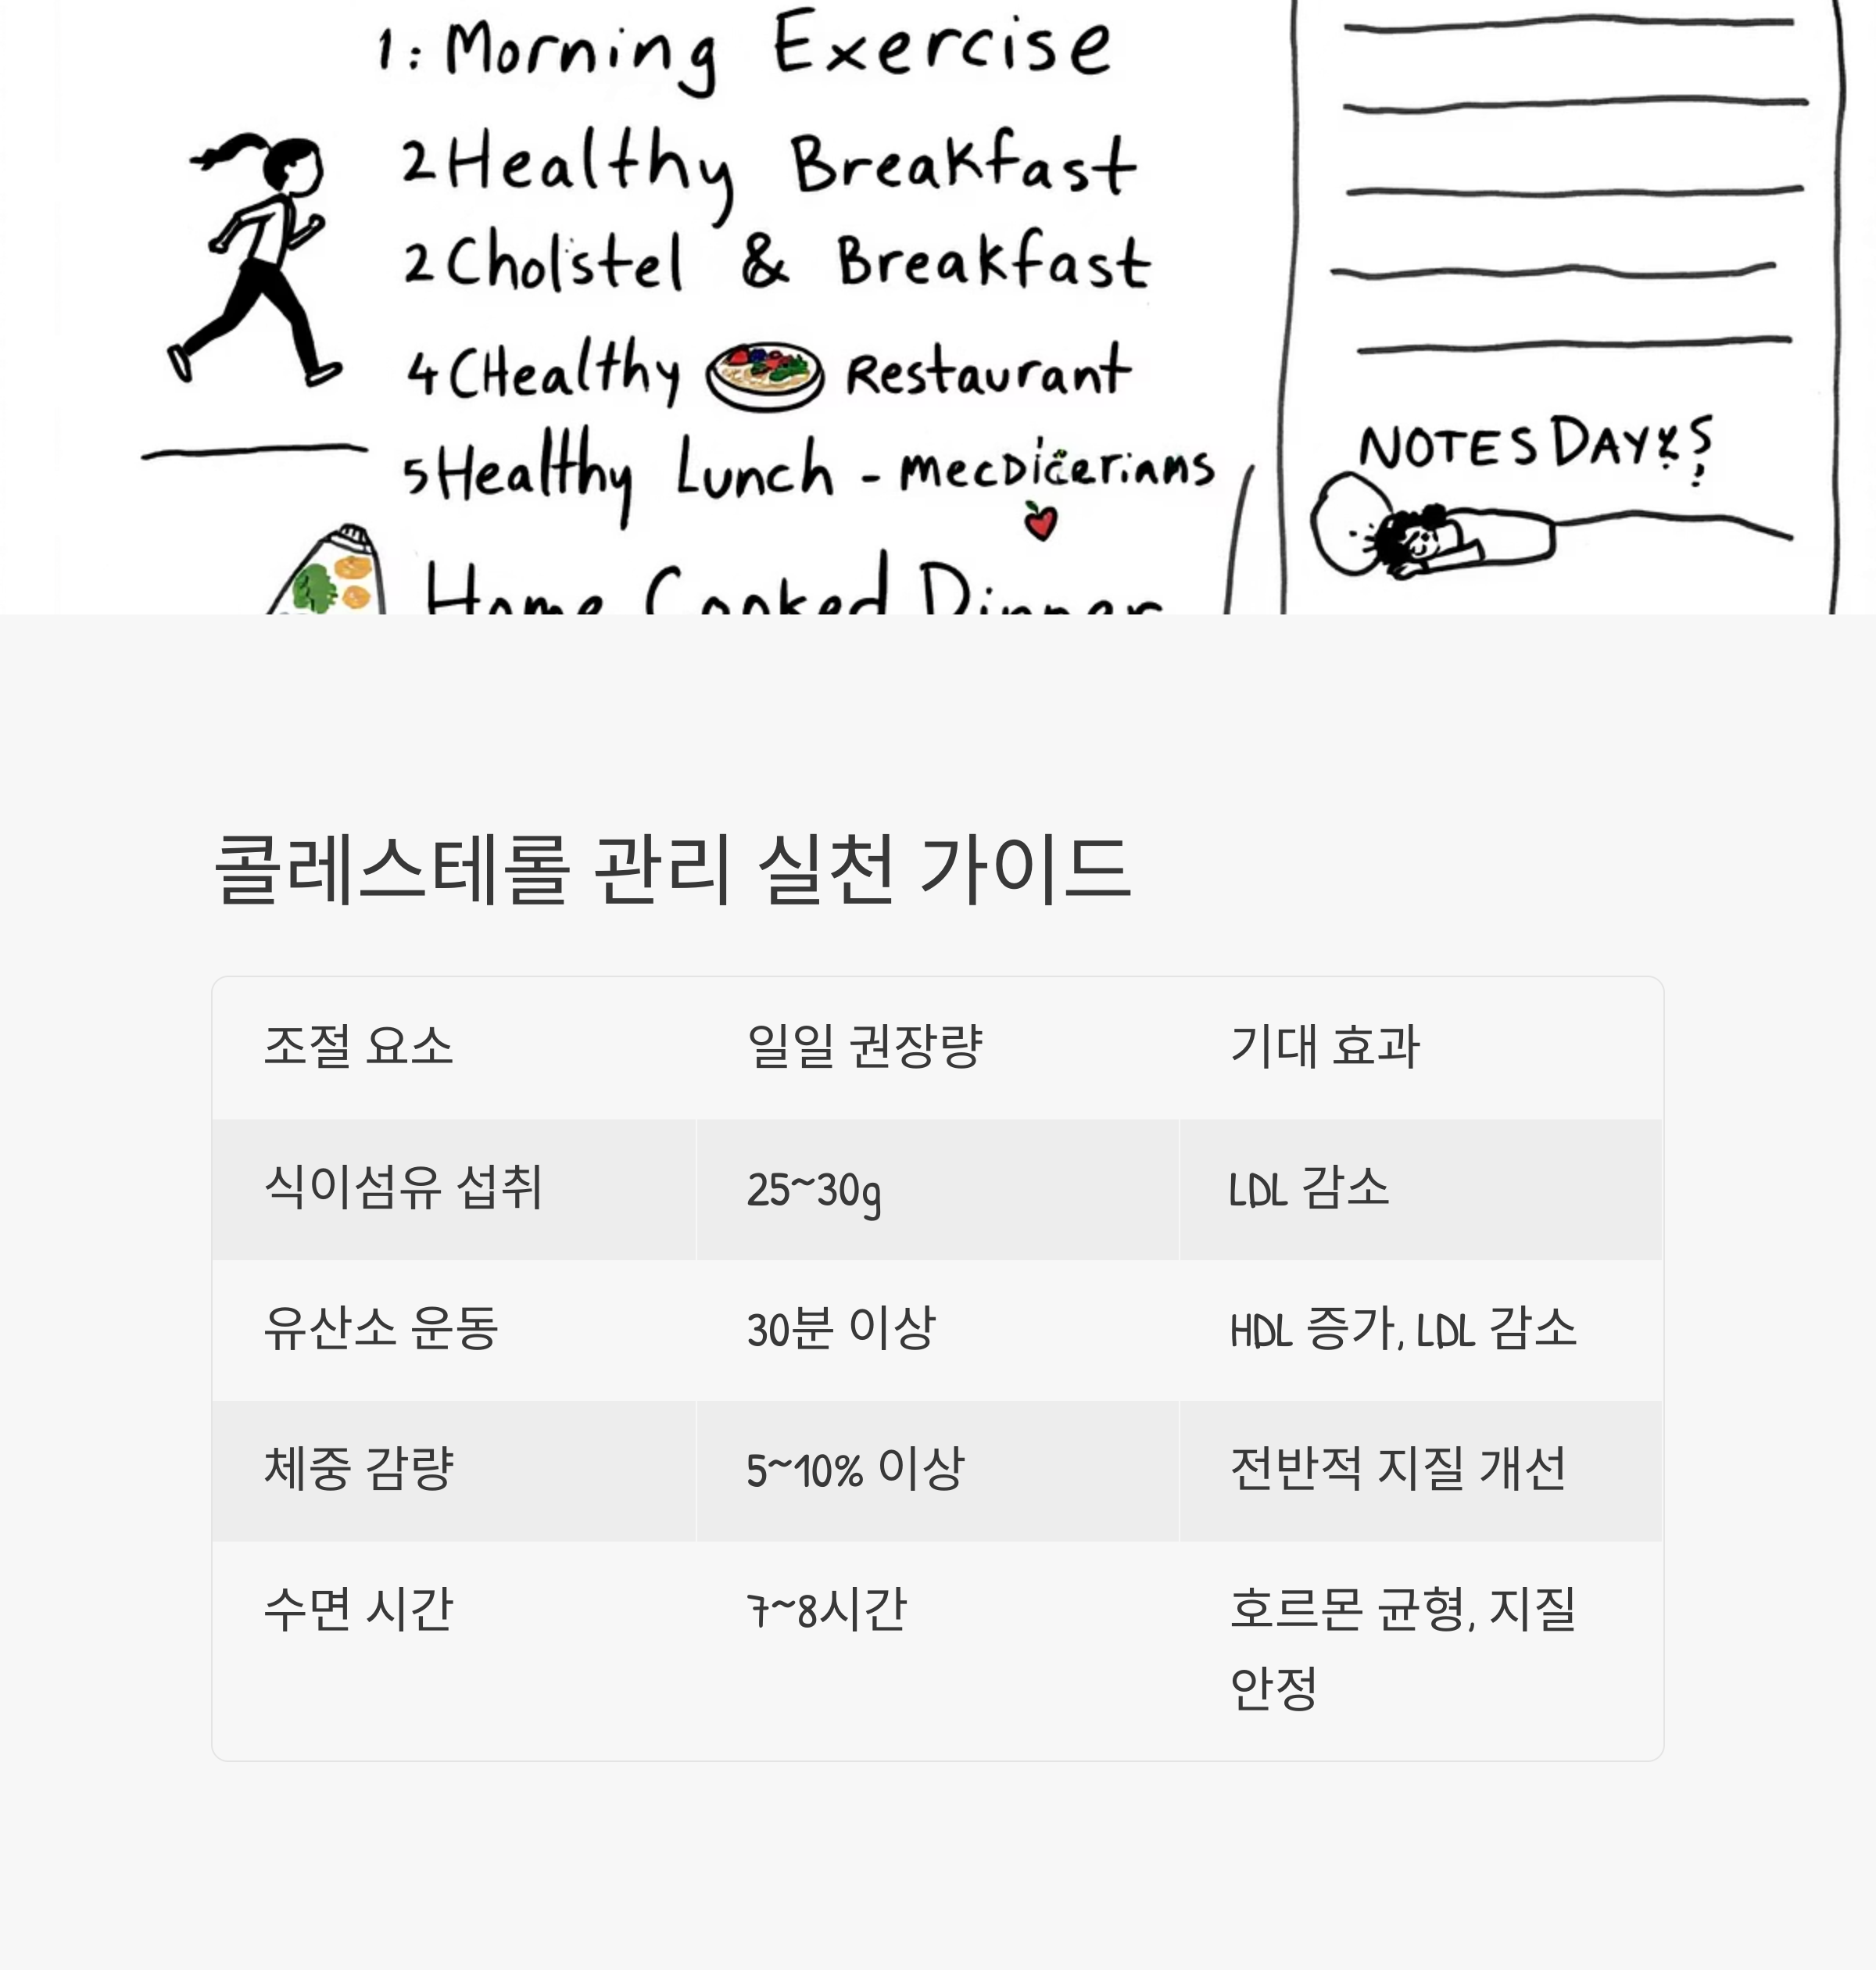 1: Morning Exercise
2 Healthy Breakfast
2 Cholstel & Breakfast
4 CHealthy Restaurant
5 Healthy Lunch - mecDicerians
Home Cooked Dinner
NOTES DAY
콜레스테롤 관리 실천 가이드
조절 요소 일일 권장량 기대 효과
식이섬유 섭취 25~30g LDL 감소
유산소 운동 30분 이상 HDL 증가, LDL 감소
체중 감량 5~10% 이상 전반적 지질 개선
수면 시간 7~8시간 호르몬 균형, 지질
안정